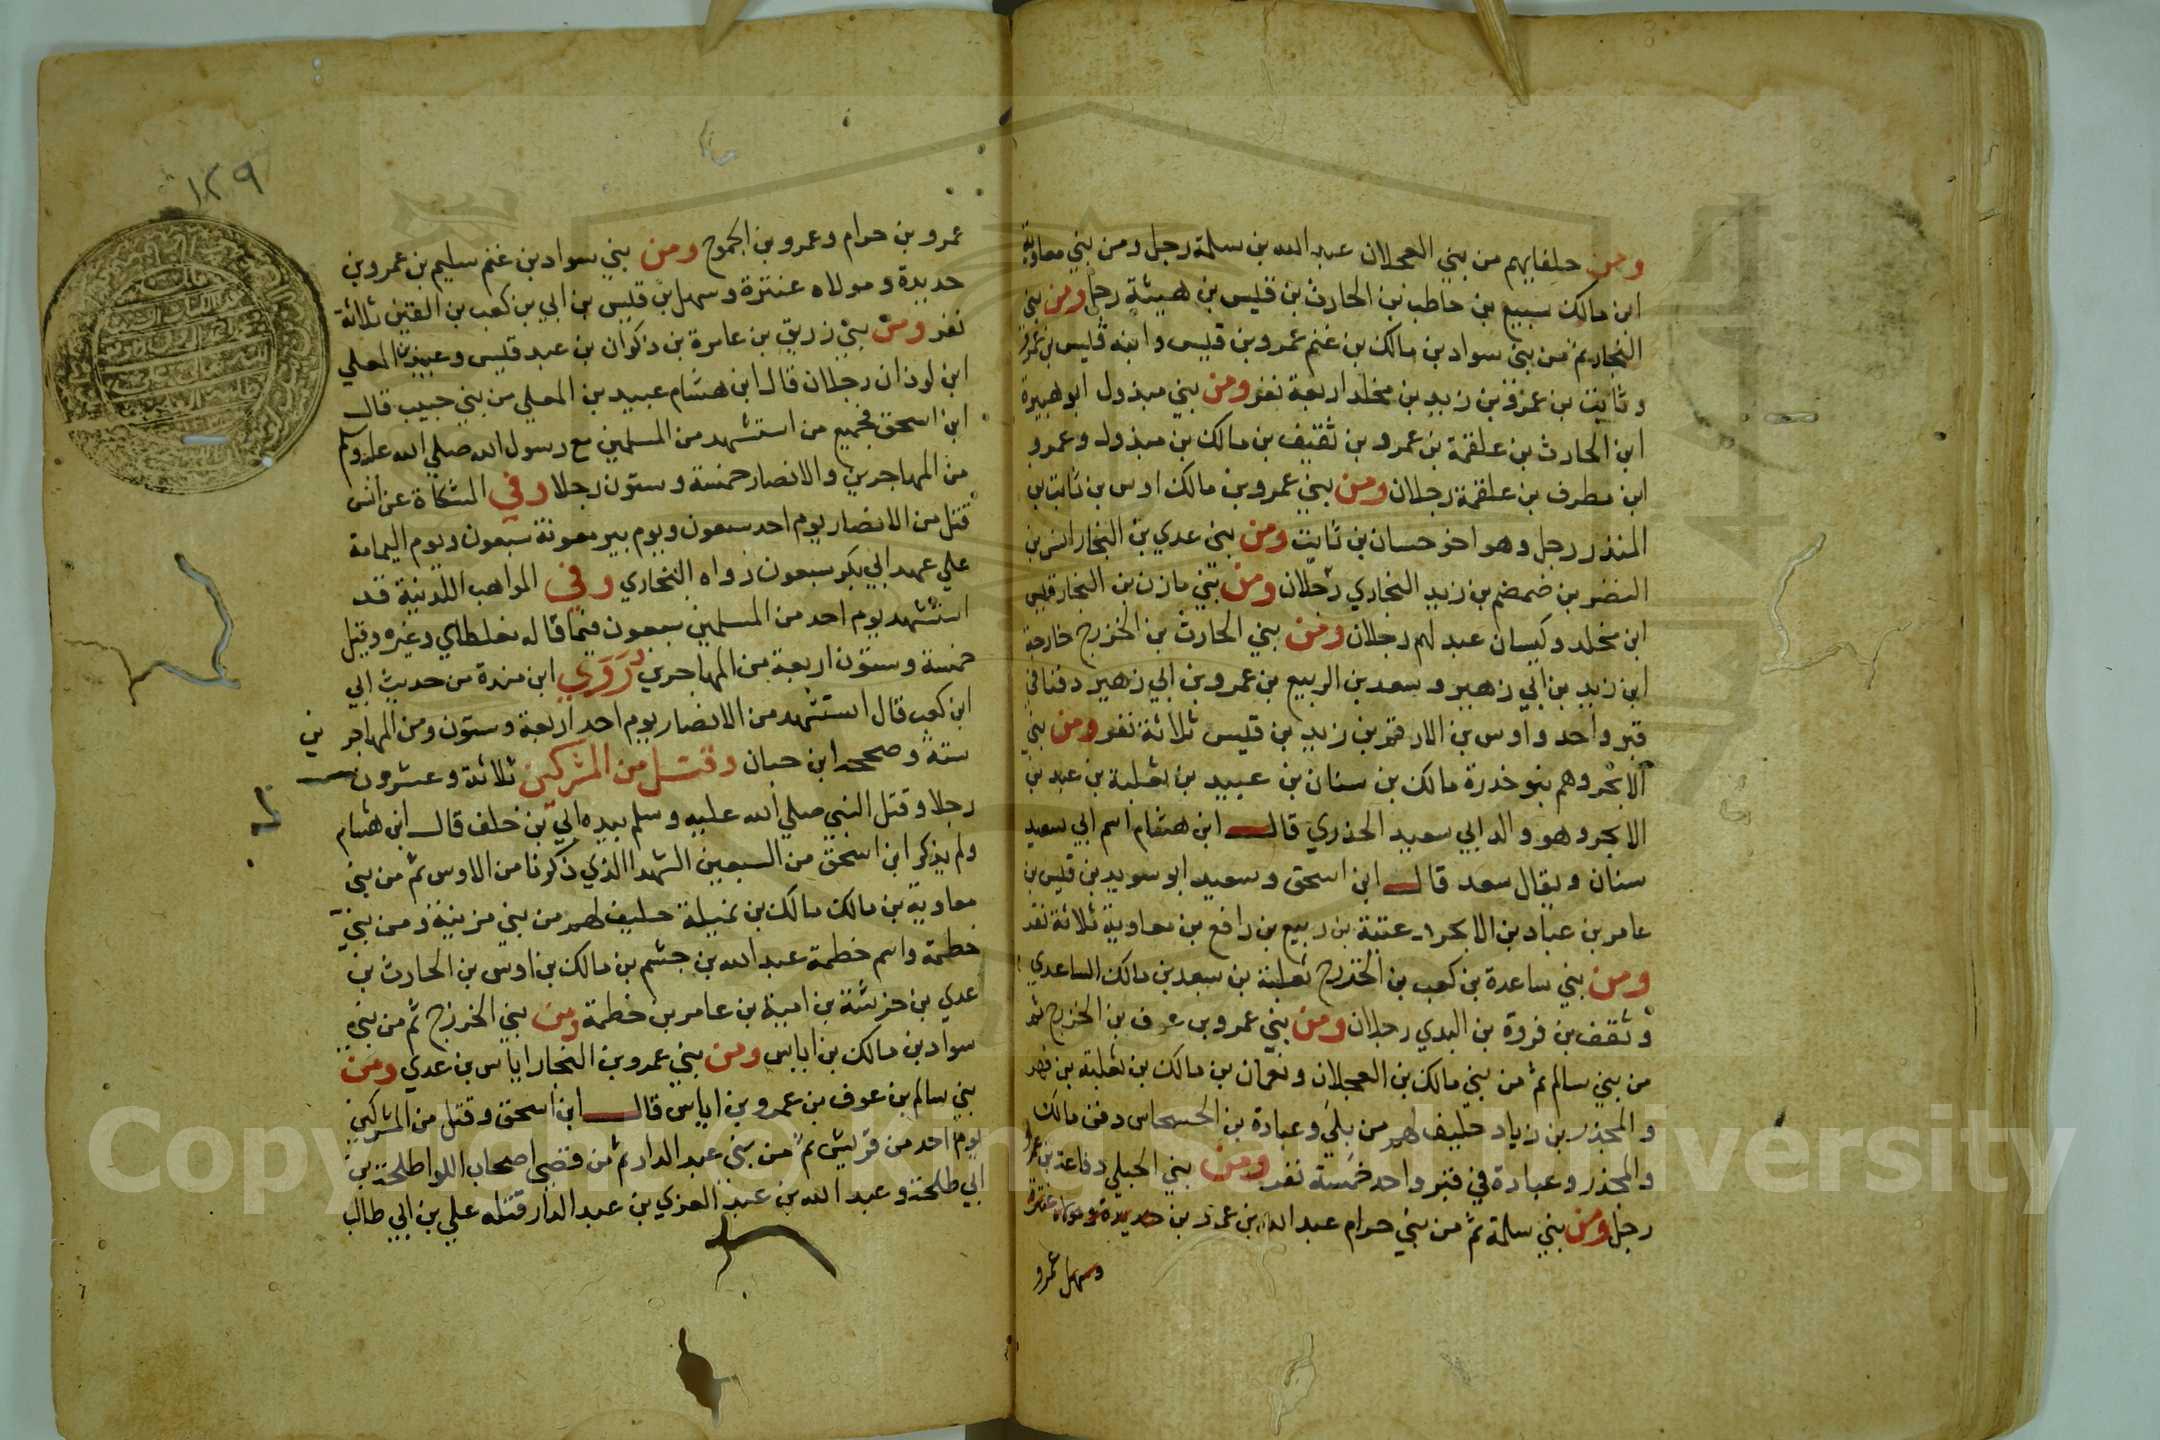 ومن حلفايهم من بني العجلان عبد الله بن سلمة رجل ومن بني معاوية
ابن مالك سبيع بن حاطب بن الحارث بن قيس بن هيشة رجل ومن بني
النجار ثم من بني سواد بن مالك بن غنم عمرو بن قيس وابنه قيس بن عمرو
وثابت بن عمرو بن زيد بن مخلد اربعة نفر ومن بني مبذول ابو هبيرة
ابن الحارث بن علقمة بن عمرو بن ثقيف بن مالك بن مبذول وعمرو
ابن مطرف بن علقمة رجلان ومن بني عمرو بن مالك اوس بن ثابت بن
المنذر رجل وهو اخو حسان بن ثابت ومن بني عدي بن النجار انس بن
النضر بن ضمضم بن زيد النجاري رجلان ومن بني مازن بن النجار قيس
ابن مخلد وكيسان عبد لهم رجلان ومن بني الحارث بن الخزرج خارجة
ابن زيد بن ابي زهير وسعد بن الربيع بن عمرو بن ابي زهير دفنا في
قبر واحد واوس بن الارقم بن زيد بن قيس ثلاثة نفر ومن بني
الابجر وهم بنو خدرة مالك بن سنان بن عبيد بن ثعلبة بن عبد بن
الابجر وهو والد ابي سعيد الخدري قال ابن هشام اسم ابي سعيد
سنان ويقال سعد قال ابن اسحق وسعيد ابو سويد بن قيس بن
عامر بن عباد بن الابجر وعتبة بن ربيع بن رافع بن معاوية ثلاثة نفر
ومن بني ساعدة بن كعب بن الخزرج ثعلبة بن سعد بن مالك الساعدي
وثقف بن فروة بن البدي رجلان ومن بني عمرو بن عوف بن الخزرج ثم
من بني سالم ثم من بني مالك بن العجلان ونعمان بن مالك بن ثعلبة بن فهر
والمجذر بن زياد حليف لهم من بلي وعبادة بن الحسحاس دفن مالك
والمجذر وعبادة في قبر واحد خمسة نفر ومن بني الحبلي رفاعة بن عمرو
رجل ومن بني سلمة ثم من بني حرام عبد الله بن عمرو بن حديدة ومولاه عنترة
وسهل عمرو
١٢٩
عمرو بن حرام وعمرو بن الجموح ومن بني سواد بن غنم سليم بن عمرو بن
حديدة ومولاه عنترة وسهل بن قيس بن ابي بن كعب بن القين ثلاثة
نفر ومن بني زريق بن عامرة بن ذكوان بن عبد قيس وعبيد بن المعلي
ابن لوذان رجلان قال ابن هشام عبيد بن المعلي من بني حبيب قال
ابن اسحق فجميع من استشهد من المسلمين مع رسول الله صلي الله عليه وسلم
من المهاجرين والانصار خمسة وستون رجلا وفي المشكاة عن انس
قتل من الانصار يوم احد سبعون ويوم بير معونة سبعون ويوم اليمامة
علي عهد ابي بكر سبعون رواه البخاري وفي المواهب اللدنية قد
استشهد يوم احد من المسلمين سبعون فيما قاله مغلطاي وغيره وقيل
خمسة وستون اربعة من المهاجرين وروي ابن مندة من حديث ابي
ابن كعب قال استشهد من الانصار يوم احد اربعة وستون ومن المهاجرين
ستة وصححه ابن حبان وقتل من المشركين ثلاثة وعشرون
رجلا وقتل النبي صلي الله عليه وسلم بيده ابي بن خلف قال ابن هشام
ولم يذكر ابن اسحق من السبعين الشهدا الذي ذكرنا من الاوس ثم من بني
معاوية بن مالك مالك بن نميلة حليف لهم من بني مزينة ومن بني
خطمة واسم خطمة عبد الله بن جشم بن مالك بن اوس بن الحارث بن
عدي بن خرشة بن امية بن عامر بن خطمة ومن بني الخزرج ثم من بني
سواد بن مالك بن اياس ومن بني عمرو بن النجار اياس بن عدي ومن
بني سالم بن عوف بن عمرو بن اياس قال ابن اسحق وقتل من المشركين
يوم احد من قريش ثم من بني عبد الدار ثم من قصي اصحاب اللوا طلحة بن
ابي طلحة وعبد الله بن عبد العزي بن عبد الدار قتله علي بن ابي طالب